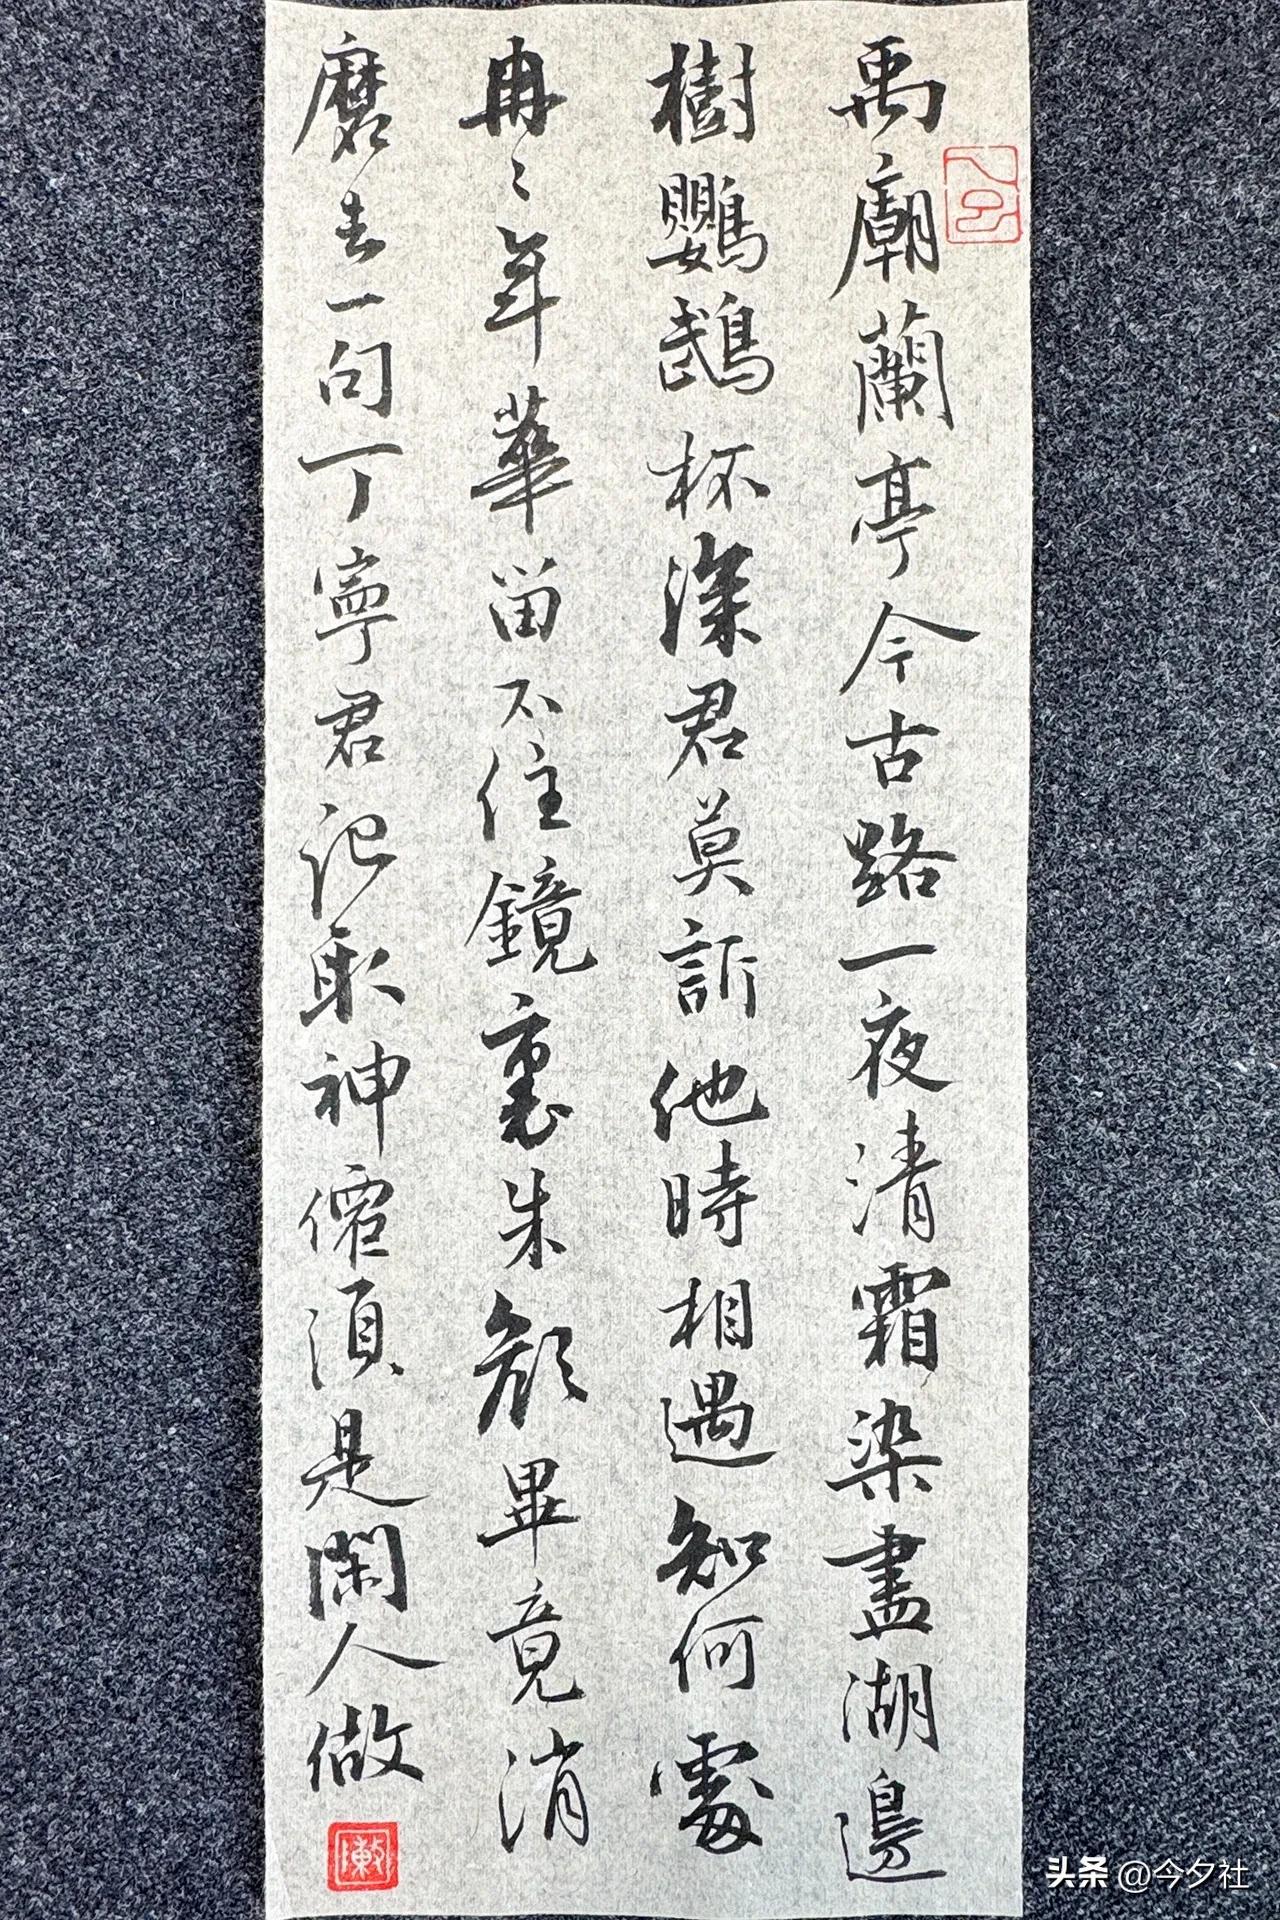 禹廟蘭亭今古路一夜清霜染盡湖邊
樹鸚鵡杯深君莫訴他時相遇知何處
冉〻年華留不住鏡裏朱顏畢竟消
磨去一句丁寧君記取神僊須是閑人做
头条 @今夕社